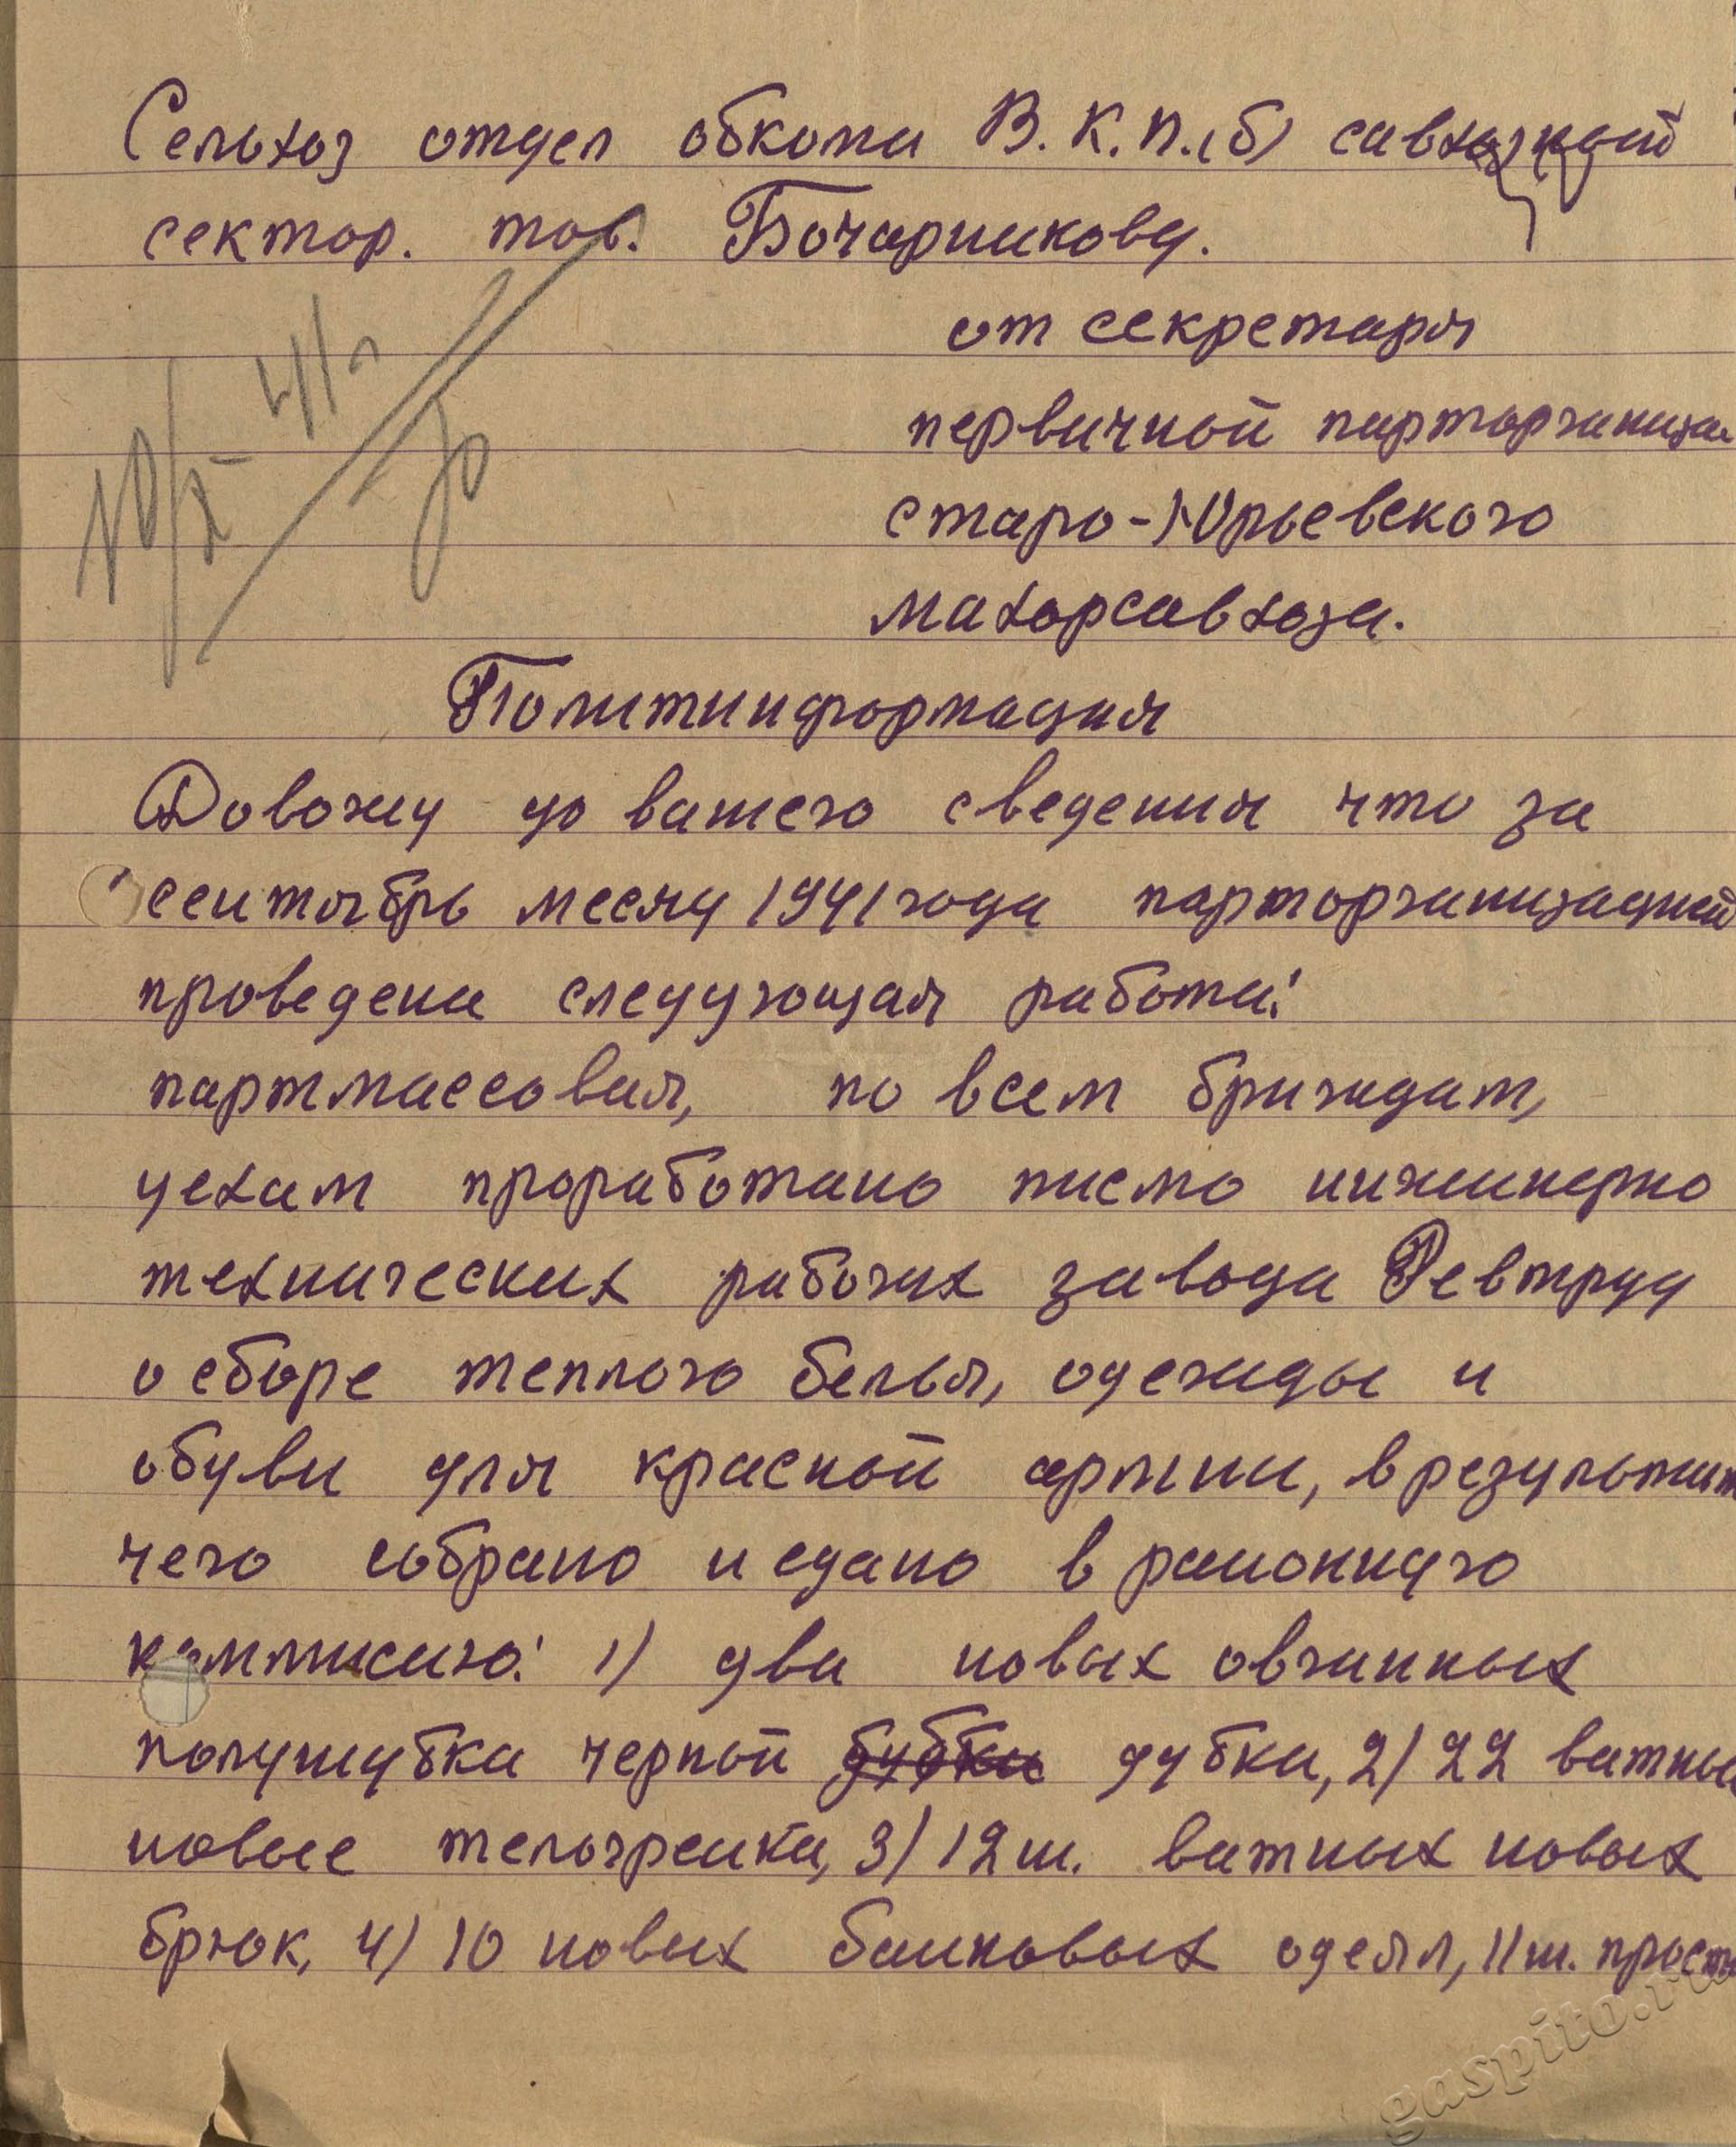 Сельхоз отдел обкома В.К.П.(б) савхозной
сектор. тов. Бочарникову.
от секретаря
первичной парторганиза
старо-Юрьевского
махорсавхоза.
10/X 41 г
Политинформация
Довожу до вашего сведения что за
сентябрь месяц 1941 года парторганизацией
проведена следующая работа:
партмассовая, по всем бригадам,
цехам проработано писмо инжинерно
технических рабочих завода Ревтруд
о сборе теплого белья, одежды и
обуви для красной армии, в результат
чего собрано и сдано в раионную
коммисию: 1) два новых овчинных
полушубка черной дубки дубки, 2) 22 ватны
новые телогреика, 3) 12 ш. ватных новых
брюк, 4) 10 новых баиковых одеял, 11 ш. просты
gaspito.ru